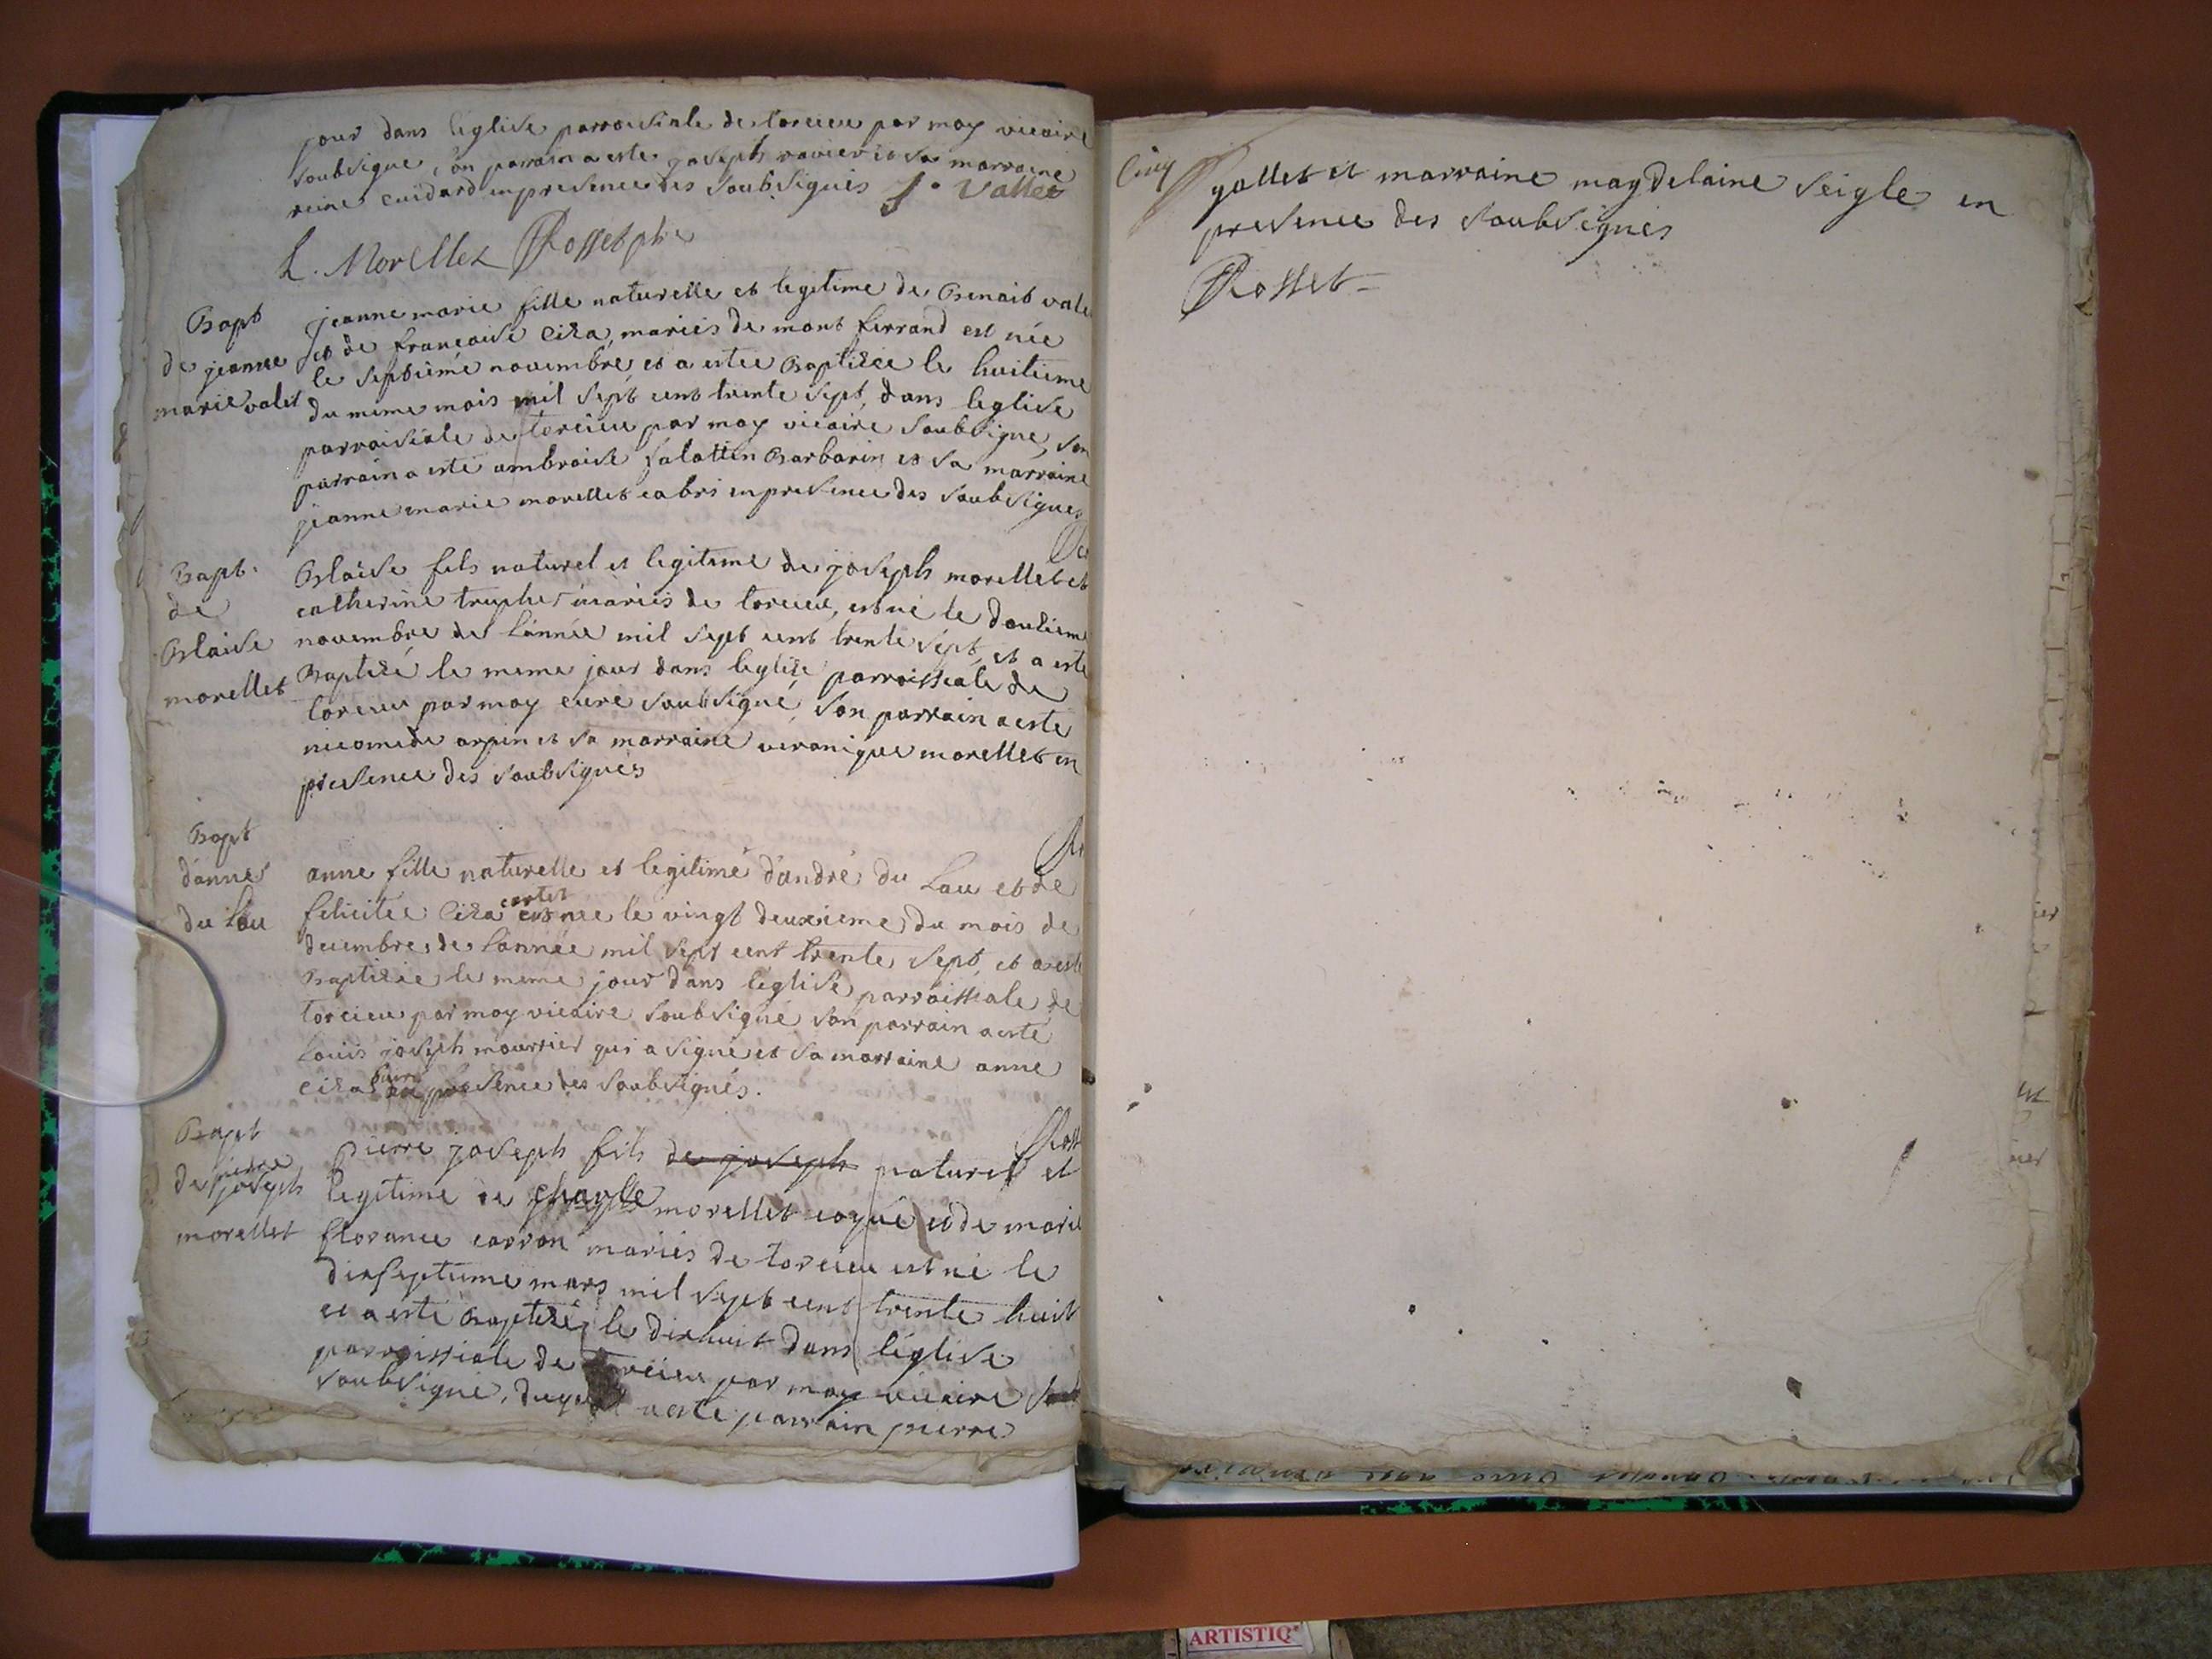 jour dans l'eglise parroisiale de torcieu par moy vicaire
soubsigne, son parrain a este joseph ravier et sa marraine
reine cuidard en presence des soubsignés J. Vallet
L. Morellet Rosset ptre
Bapt
de jeanne
marie valet
jeanne marie fille naturelle et legitime de Benoit valet
et de francoise Ciza, mariés de mont ferrand est née
le septiéme novembre, et a estee Baptizée le huitieme
du meme mois mil sept cent trente sept, dans leglise
parroisiale de torcieu par moy vicaire soubsigne, son
parrain a esté ambroise falattin Barbarin et sa marraine
jeanne marie morellet cabri en presence des soubsignes
Bapt.
de
Blaise
morellet
Blaise fils naturel et legitime de joseph morellet et
catherine truche mariés de torcieu, est né le douzieme
novembre de l'année mil sept cent trente sept, et a este
Baptizé le meme jour dans leglize parroissiale de
torcieu par moy curé soubsigné, son parrain a este
nicomede arpin et sa marraine veronique morellet en
presence des soubsignés
Bapt
d'anne
du Lau
anne fille naturelle et legitime d'andré du Lau et de
felicitee Ciza est nee le vingt deuxieme du mois de
decembre de l'année mil sept cent trente sept, et a este
Baptizée le meme jour dans l'eglise parroissiale de
torcieu par moy vicaire soubsigné son parrain a esté
Louis joseph mourrier qui a signé et sa marraine anne
Ciza en presence des soubsignés.
Bapt
de pierre
joseph
morellet
Ross
Pierre joseph fils de joseph naturel et
legitime de charle morellet coqué et de marie
florance carron mariés de torcieu est né le
dixseptieme mars mil sept cent trente huit
et a esté Baptizé le dixhuit dans l'église
parroissiale de torcieu par moy vicaire
soubsigné, duquel a esté parrain pierre
Cinq
gallet et marraine magdelaine seigle en
presence des soubsignés
Rosset
ARTISTIQ